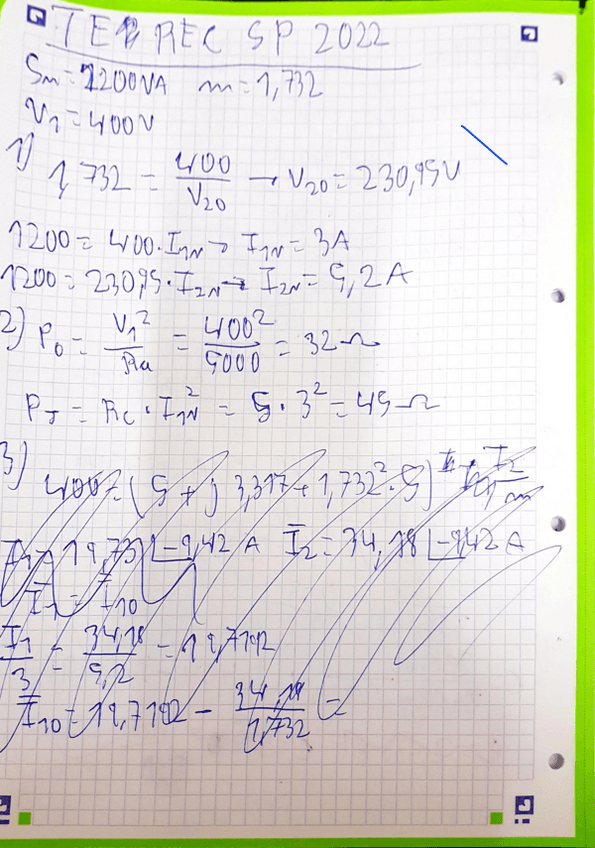 TEB REC SP 2022
Sm = 1200VA m = 1,732
V1 = 400V
1)
1,732 = 400/V20 → V20 = 230,95V
1200 = 400·I1N → I1N = 3A
1200 = 230,95·I2N → I2N = 5,2A
2) P0 = V1²/Ra = 400²/5000 = 32Ω
PJ = Rc·I1N² = 5·3² = 45Ω
3)
400 = (5 + j 3,317 + 1,732²·5) I2/m
I1 = 19,73 ∠-9,42 A I2 = 34,18 ∠-9,42 A
I1 = I10
I1/3 = 34,18/5,2 = 19,7192
I10 = 19,7192 - 34,18/1,732 =